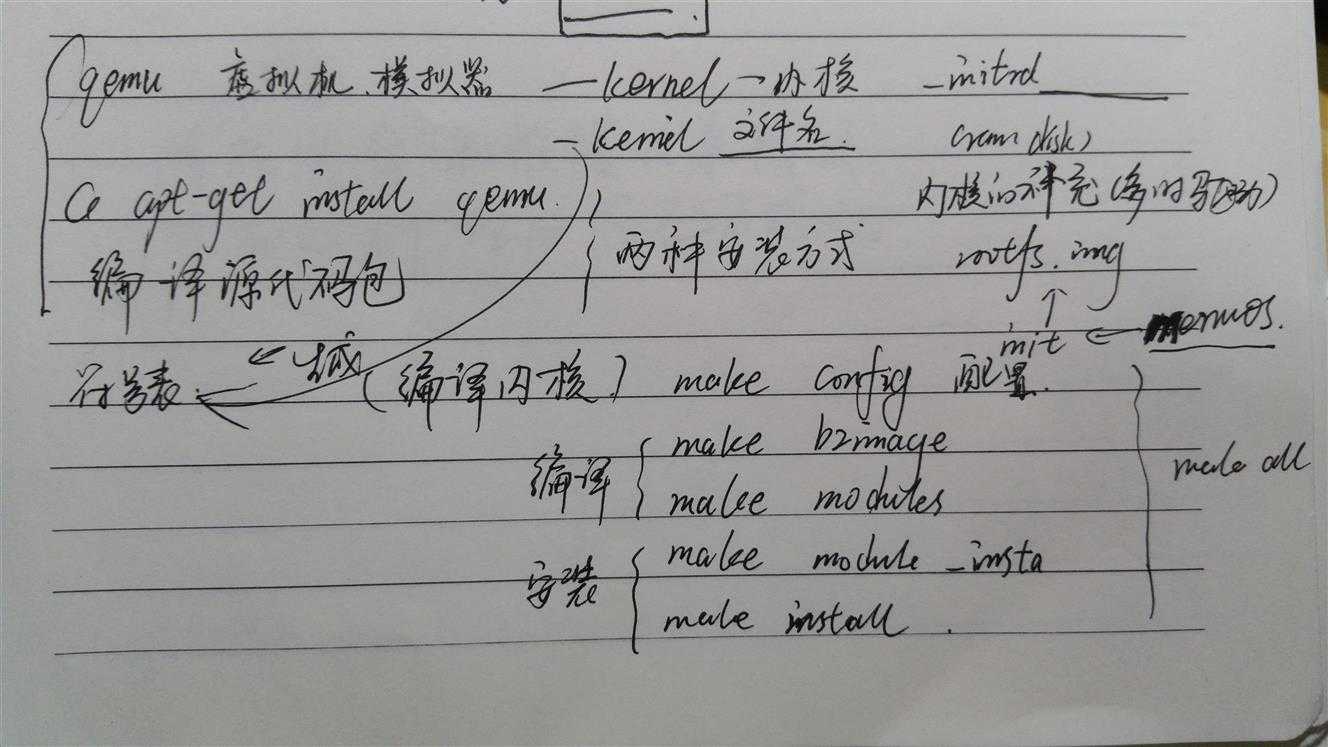 qemu 虚拟机、模拟器 —kernel — 内核 -initrd
-kernel 文件名. (ram disk)
apt-get install qemu.
内核的补充(多的驱动)
编译源代码包
两种安装方式 rootfs.img
init ← menuos.
符号表 ← 生成 (编译内核) make config 配置.
编译 make bzimage
make modules
make all
安装 make module_insta
make install.